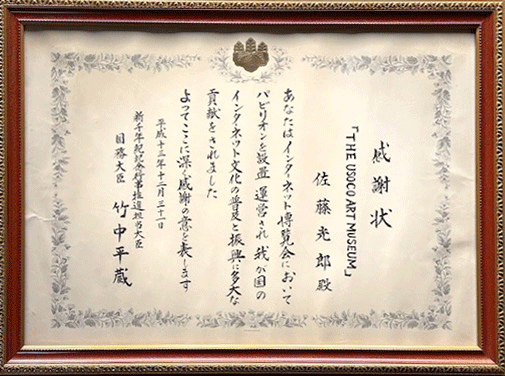 感謝状
「THE USOCO ART MUSEUM」
佐藤光郎殿
あなたはインターネット博覧会において
パビリオンを設置 運営され 我が国の
インターネット文化の普及と振興に多大な
貢献をされました
よってここに深く感謝の意を表します
平成十三年十二月三十一日
新千年紀記念行事推進担当大臣
国務大臣 竹中平蔵